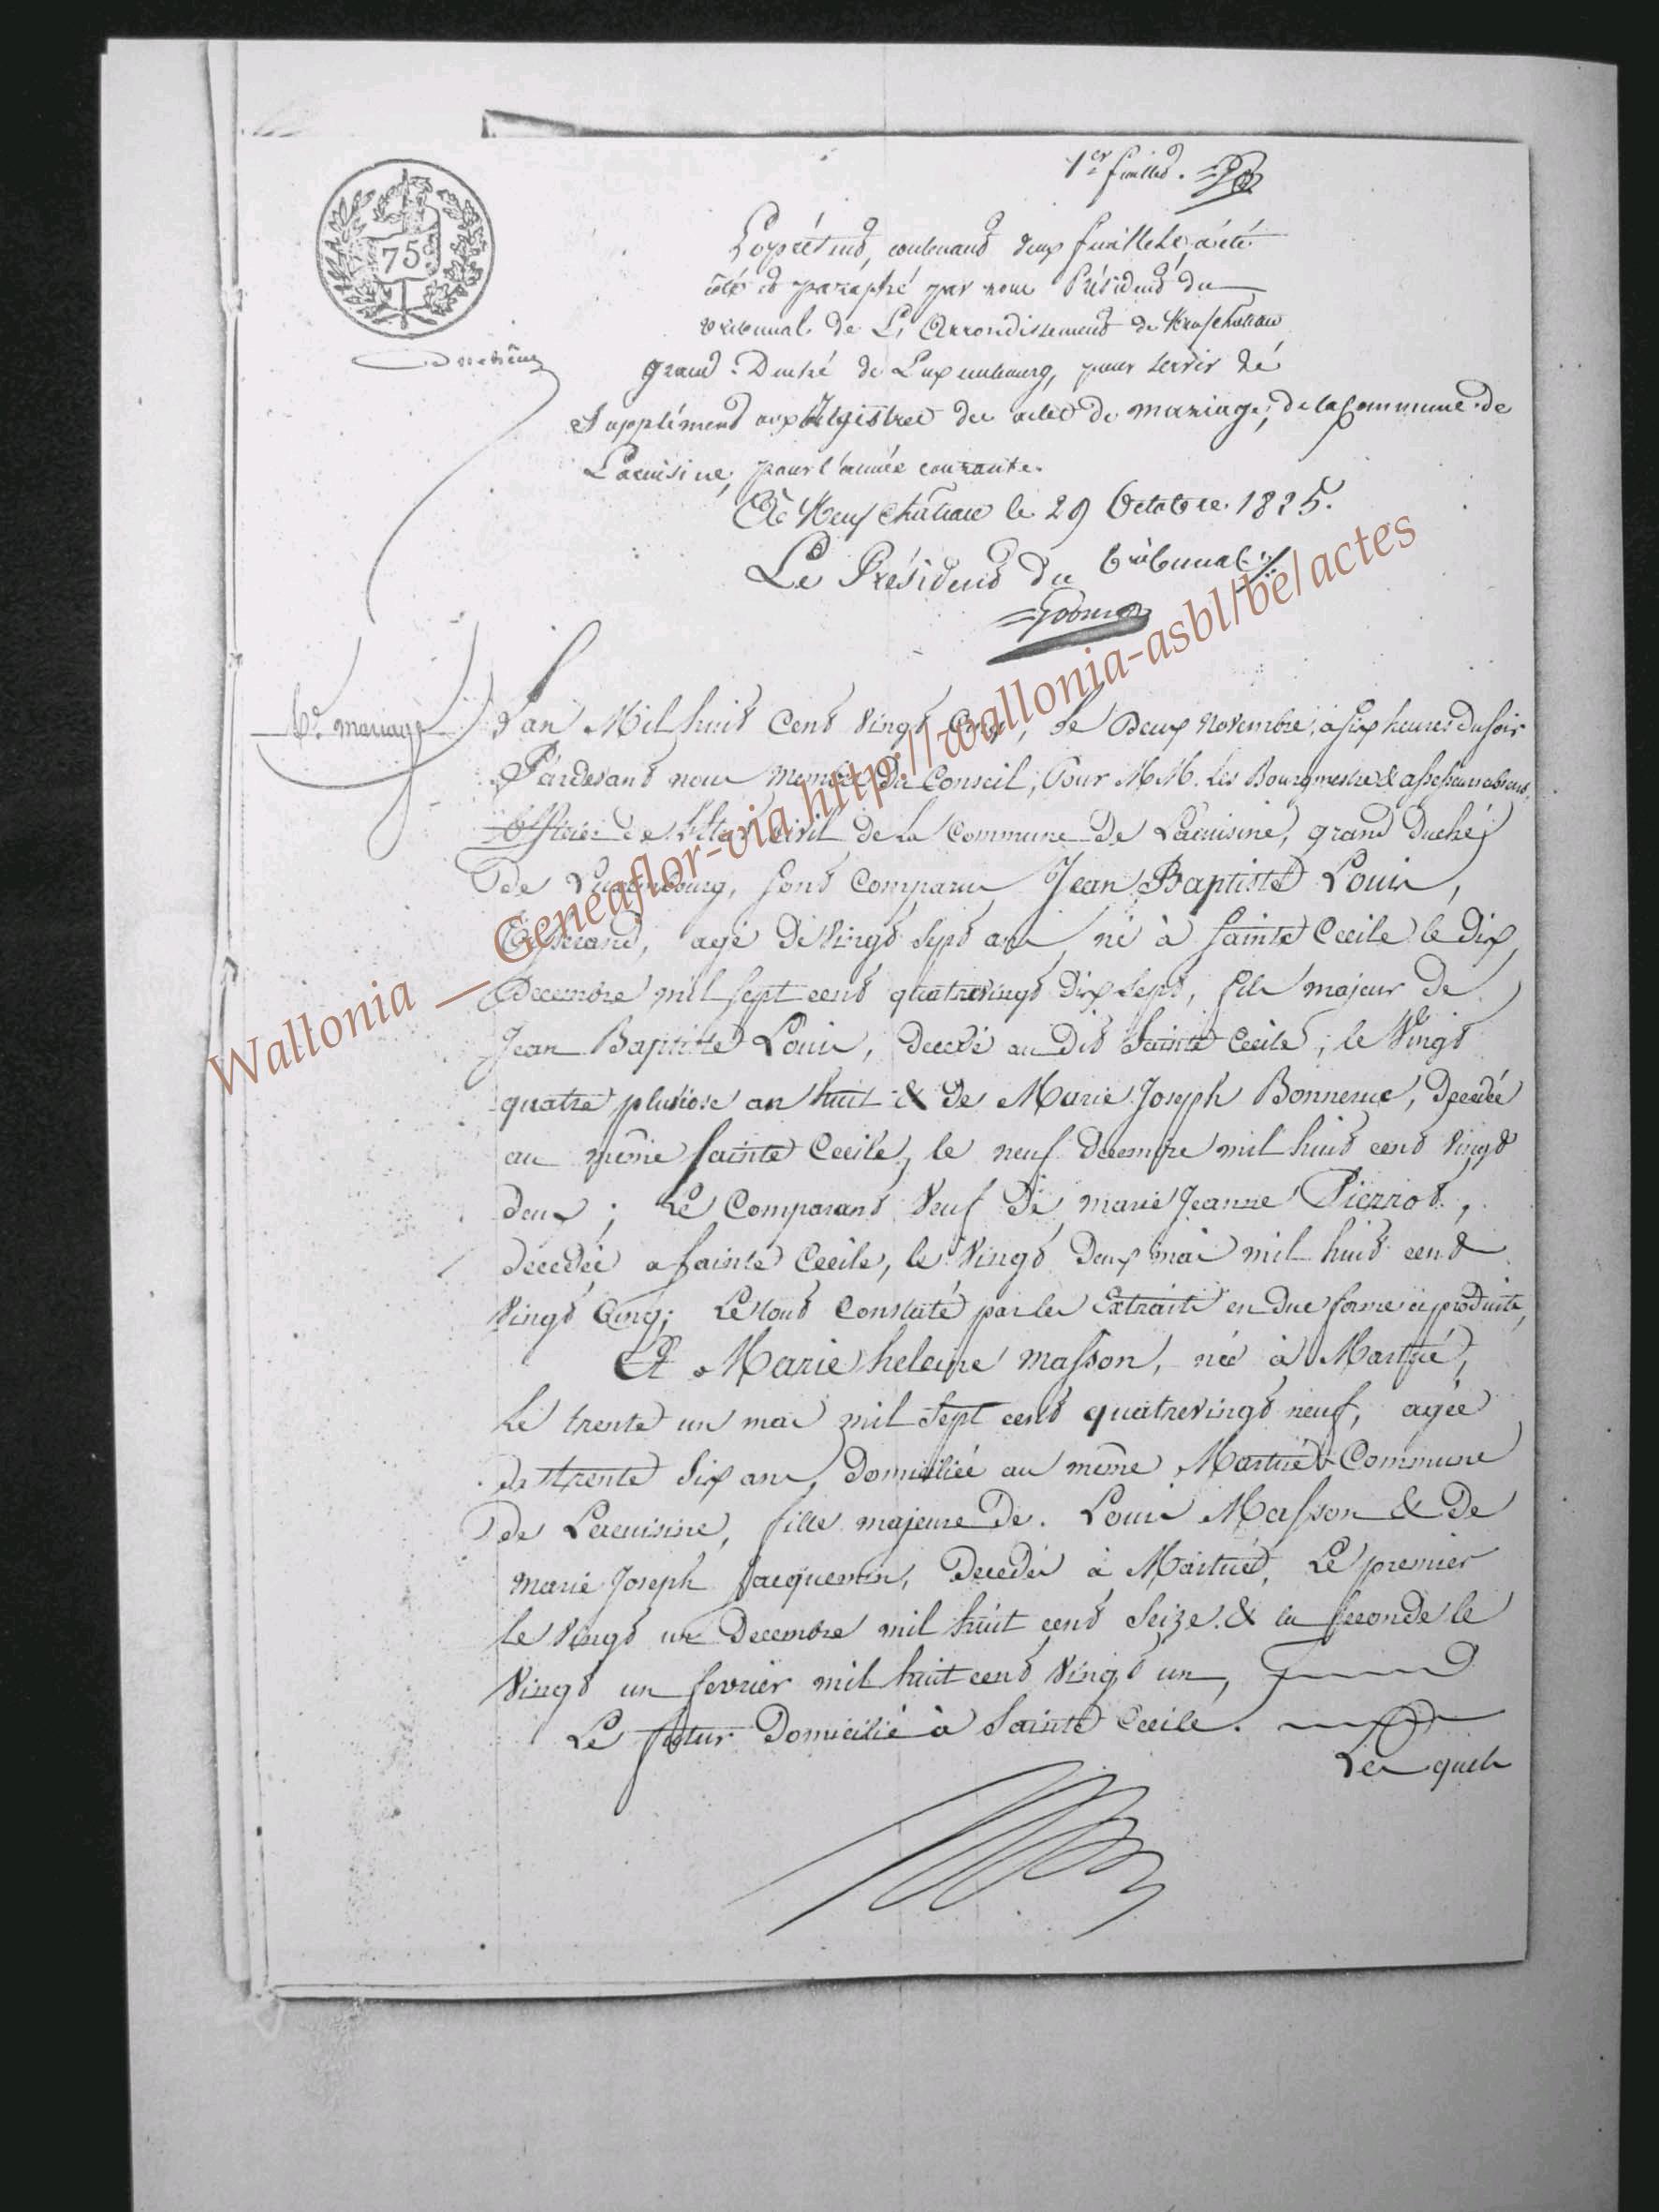 1er feuillet.
75c
Le présent, contenant deux feuillets, a été
coté et paraphé par nous Président du
tribunal de L'Arrondissement de Neufchateau
grand-Duché de Luxembourg, pour servir de
Supplément aux Registres des actes de mariage, de la Commune de
Lacuisine, pour l'année courante.
A Neufchateau le 29 Octobre 1825.
Le Président du tribunal
6e mariage
L'an Mil huit Cent Vingt Cinq, le Deux Novembre, à Six heures du soir
Pardevant nous membre du Conseil, Pour M.M. Les Bourgmestre & assesseurs absens,
Officier de l'état civil de la Commune de Lacuisine, grand duché
de Luxembourg, sont Comparus Jean Baptiste Louis,
Tisserand, agé de Vingt Sept ans, né à Sainte Cecile le dix
Decembre mil sept cent quatrevingt dix sept, fils majeur de
Jean Baptiste Louis, decedé au dit Sainte Cecile, le Vingt
quatre pluviose an huit & de Marie Joseph Bonnerue, Decedée
au même Sainte Cecile, le neuf Decembre mil huit cent Vingt
deux; Le Comparant Veuf de marie Jeanne Pierrot,
decedée a Sainte Cecile, le Vingt Deux mai mil huit cent
Vingt Cinq; Le tout Constaté par les Extraits en due forme ci produits,
Et Marie heleine Masson, née à Martué,
Le trente un mai mil Sept cent quatrevingt neuf, agée
de trente Six ans, Domiciliée au même Martué Commune
de Lacuisine, fille majeure de Louis Masson & de
Marie Joseph Jacquemin, Decedés à Martué, Le premier
le Vingt un Decembre mil huit cent Seize & la seconde le
Vingt un fevrier mil huit cent Vingt un,
Le futur Domicilié à Sainte Cecile.
Lesquels
Wallonia __ Geneaflor-via http://wallonia-asbl/be/actes